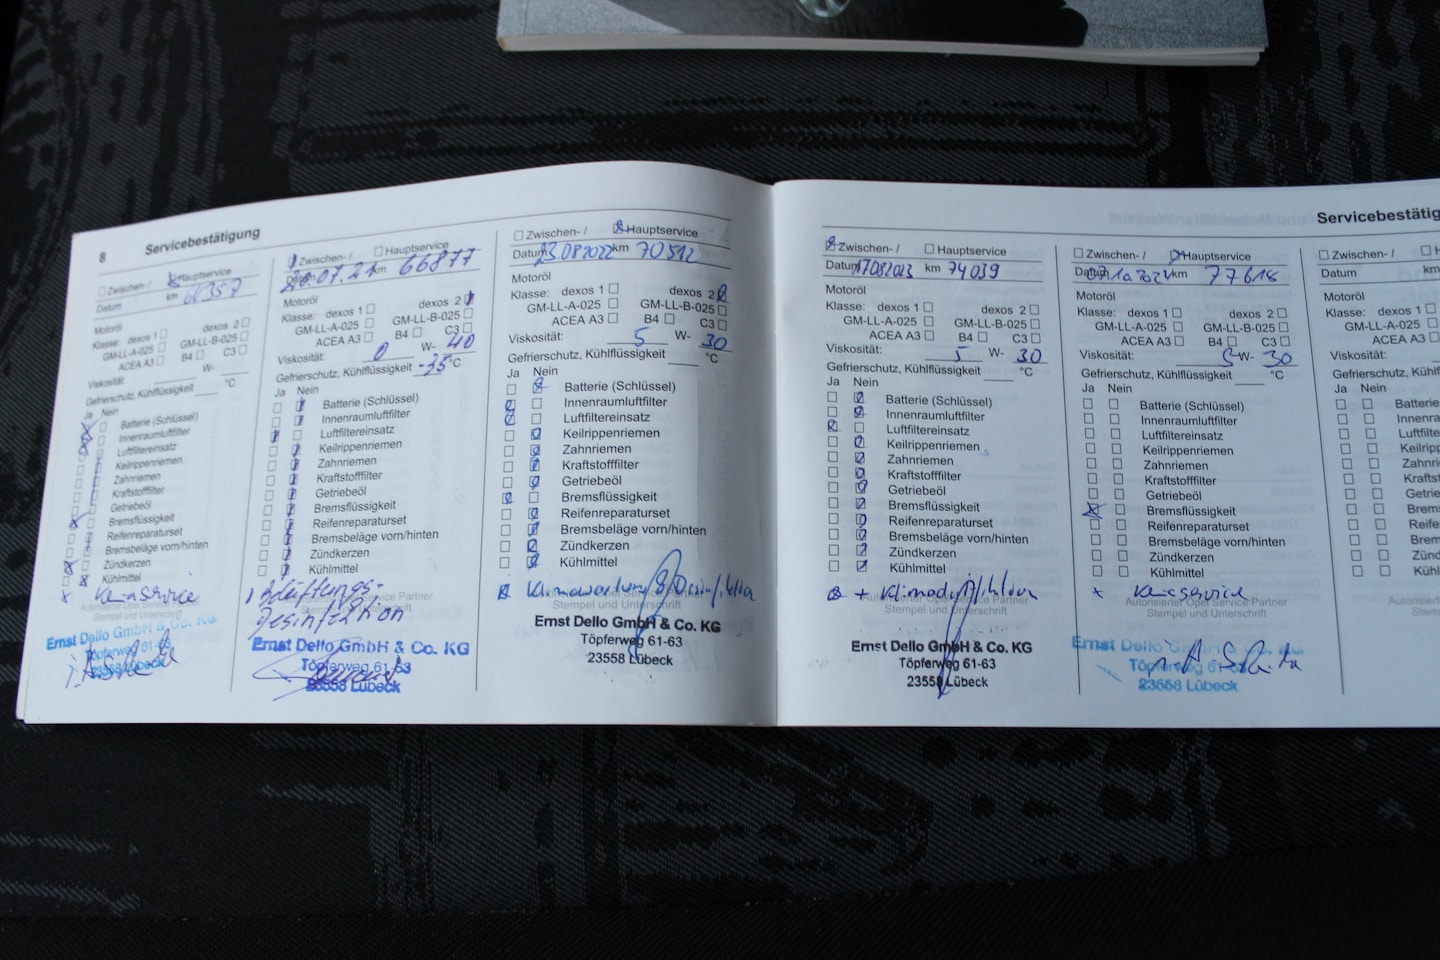 8 Servicebestätigung
Zwischen- / Hauptservice
Datum km
Motoröl
Klasse: dexos 1 dexos 2
GM-LL-A-025 GM-LL-B-025
ACEA A3 B4 C3
Viskosität: W-
Gefrierschutz, Kühlflüssigkeit °C
Ja Nein
Batterie (Schlüssel)
Innenraumluftfilter
Luftfiltereinsatz
Keilrippenriemen
Zahnriemen
Kraftstofffilter
Getriebeöl
Bremsflüssigkeit
Reifenreparaturset
Bremsbeläge vorn/hinten
Zündkerzen
Kühlmittel
Autorisierter Opel Service Partner
Stempel und Unterschrift
Ernst Dello GmbH & Co. KG
Töpferweg 61-63
23558 Lübeck
Zwischen- / Hauptservice
Datum 07.21 km 66877
Motoröl
Klasse: dexos 1 dexos 2
GM-LL-A-025 GM-LL-B-025
ACEA A3 B4 C3
Viskosität: 0 W- 40
Gefrierschutz, Kühlflüssigkeit -35 °C
Ja Nein
Batterie (Schlüssel)
Innenraumluftfilter
Luftfiltereinsatz
Keilrippenriemen
Zahnriemen
Kraftstofffilter
Getriebeöl
Bremsflüssigkeit
Reifenreparaturset
Bremsbeläge vorn/hinten
Zündkerzen
Kühlmittel
Belüftungs-
Desinfektion
Ernst Dello GmbH & Co. KG
Töpferweg 61-63
23558 Lübeck
Zwischen- / Hauptservice
Datum 23.08.2022 km 70512
Motoröl
Klasse: dexos 1 dexos 2
GM-LL-A-025 GM-LL-B-025
ACEA A3 B4 C3
Viskosität: 5 W- 30
Gefrierschutz, Kühlflüssigkeit °C
Ja Nein
Batterie (Schlüssel)
Innenraumluftfilter
Luftfiltereinsatz
Keilrippenriemen
Zahnriemen
Kraftstofffilter
Getriebeöl
Bremsflüssigkeit
Reifenreparaturset
Bremsbeläge vorn/hinten
Zündkerzen
Kühlmittel
Klimawartung
Autorisierter Opel Service Partner
Stempel und Unterschrift
Ernst Dello GmbH & Co. KG
Töpferweg 61-63
23558 Lübeck
Servicebestätig
Zwischen- / Hauptservice
Datum 17082023 km 74039
Motoröl
Klasse: dexos 1 dexos 2
GM-LL-A-025 GM-LL-B-025
ACEA A3 B4 C3
Viskosität: 5 W- 30
Gefrierschutz, Kühlflüssigkeit °C
Ja Nein
Batterie (Schlüssel)
Innenraumluftfilter
Luftfiltereinsatz
Keilrippenriemen
Zahnriemen
Kraftstofffilter
Getriebeöl
Bremsflüssigkeit
Reifenreparaturset
Bremsbeläge vorn/hinten
Zündkerzen
Kühlmittel
Autorisierter Opel Service Partner
Stempel und Unterschrift
Ernst Dello GmbH & Co. KG
Töpferweg 61-63
23558 Lübeck
Zwischen- / Hauptservice
Datum km 77618
Motoröl
Klasse: dexos 1 dexos 2
GM-LL-A-025 GM-LL-B-025
ACEA A3 B4 C3
Viskosität: 5 W- 30
Gefrierschutz, Kühlflüssigkeit °C
Ja Nein
Batterie (Schlüssel)
Innenraumluftfilter
Luftfiltereinsatz
Keilrippenriemen
Zahnriemen
Kraftstofffilter
Getriebeöl
Bremsflüssigkeit
Reifenreparaturset
Bremsbeläge vorn/hinten
Zündkerzen
Kühlmittel
Autorisierter Opel Service Partner
Stempel und Unterschrift
Ernst Dello GmbH & Co. KG
Töpferweg 61-63
23558 Lübeck
Zwischen- / H
Datum
Motoröl
Klasse: dexos 1
GM-LL-A-025
ACEA A3
Viskosität:
Gefrierschutz, Kühlflüssi
Ja Nein
Batterie
Innenra
Luftfilte
Keilripp
Zahnri
Kraftst
Getrie
Brems
Reife
Brem
Zünd
Kühl